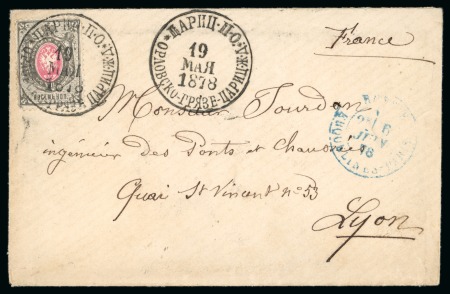 ЦАРИЦ-П-О
19
МАЯ
1878
ОРЛОВСКО-ГРЯЗЕ-ЦАРИЦ-ЖД
France
Monsieur Jourdan
ingénieur des Ponts et Chaussées
Quai St Vincent no 53
Lyon